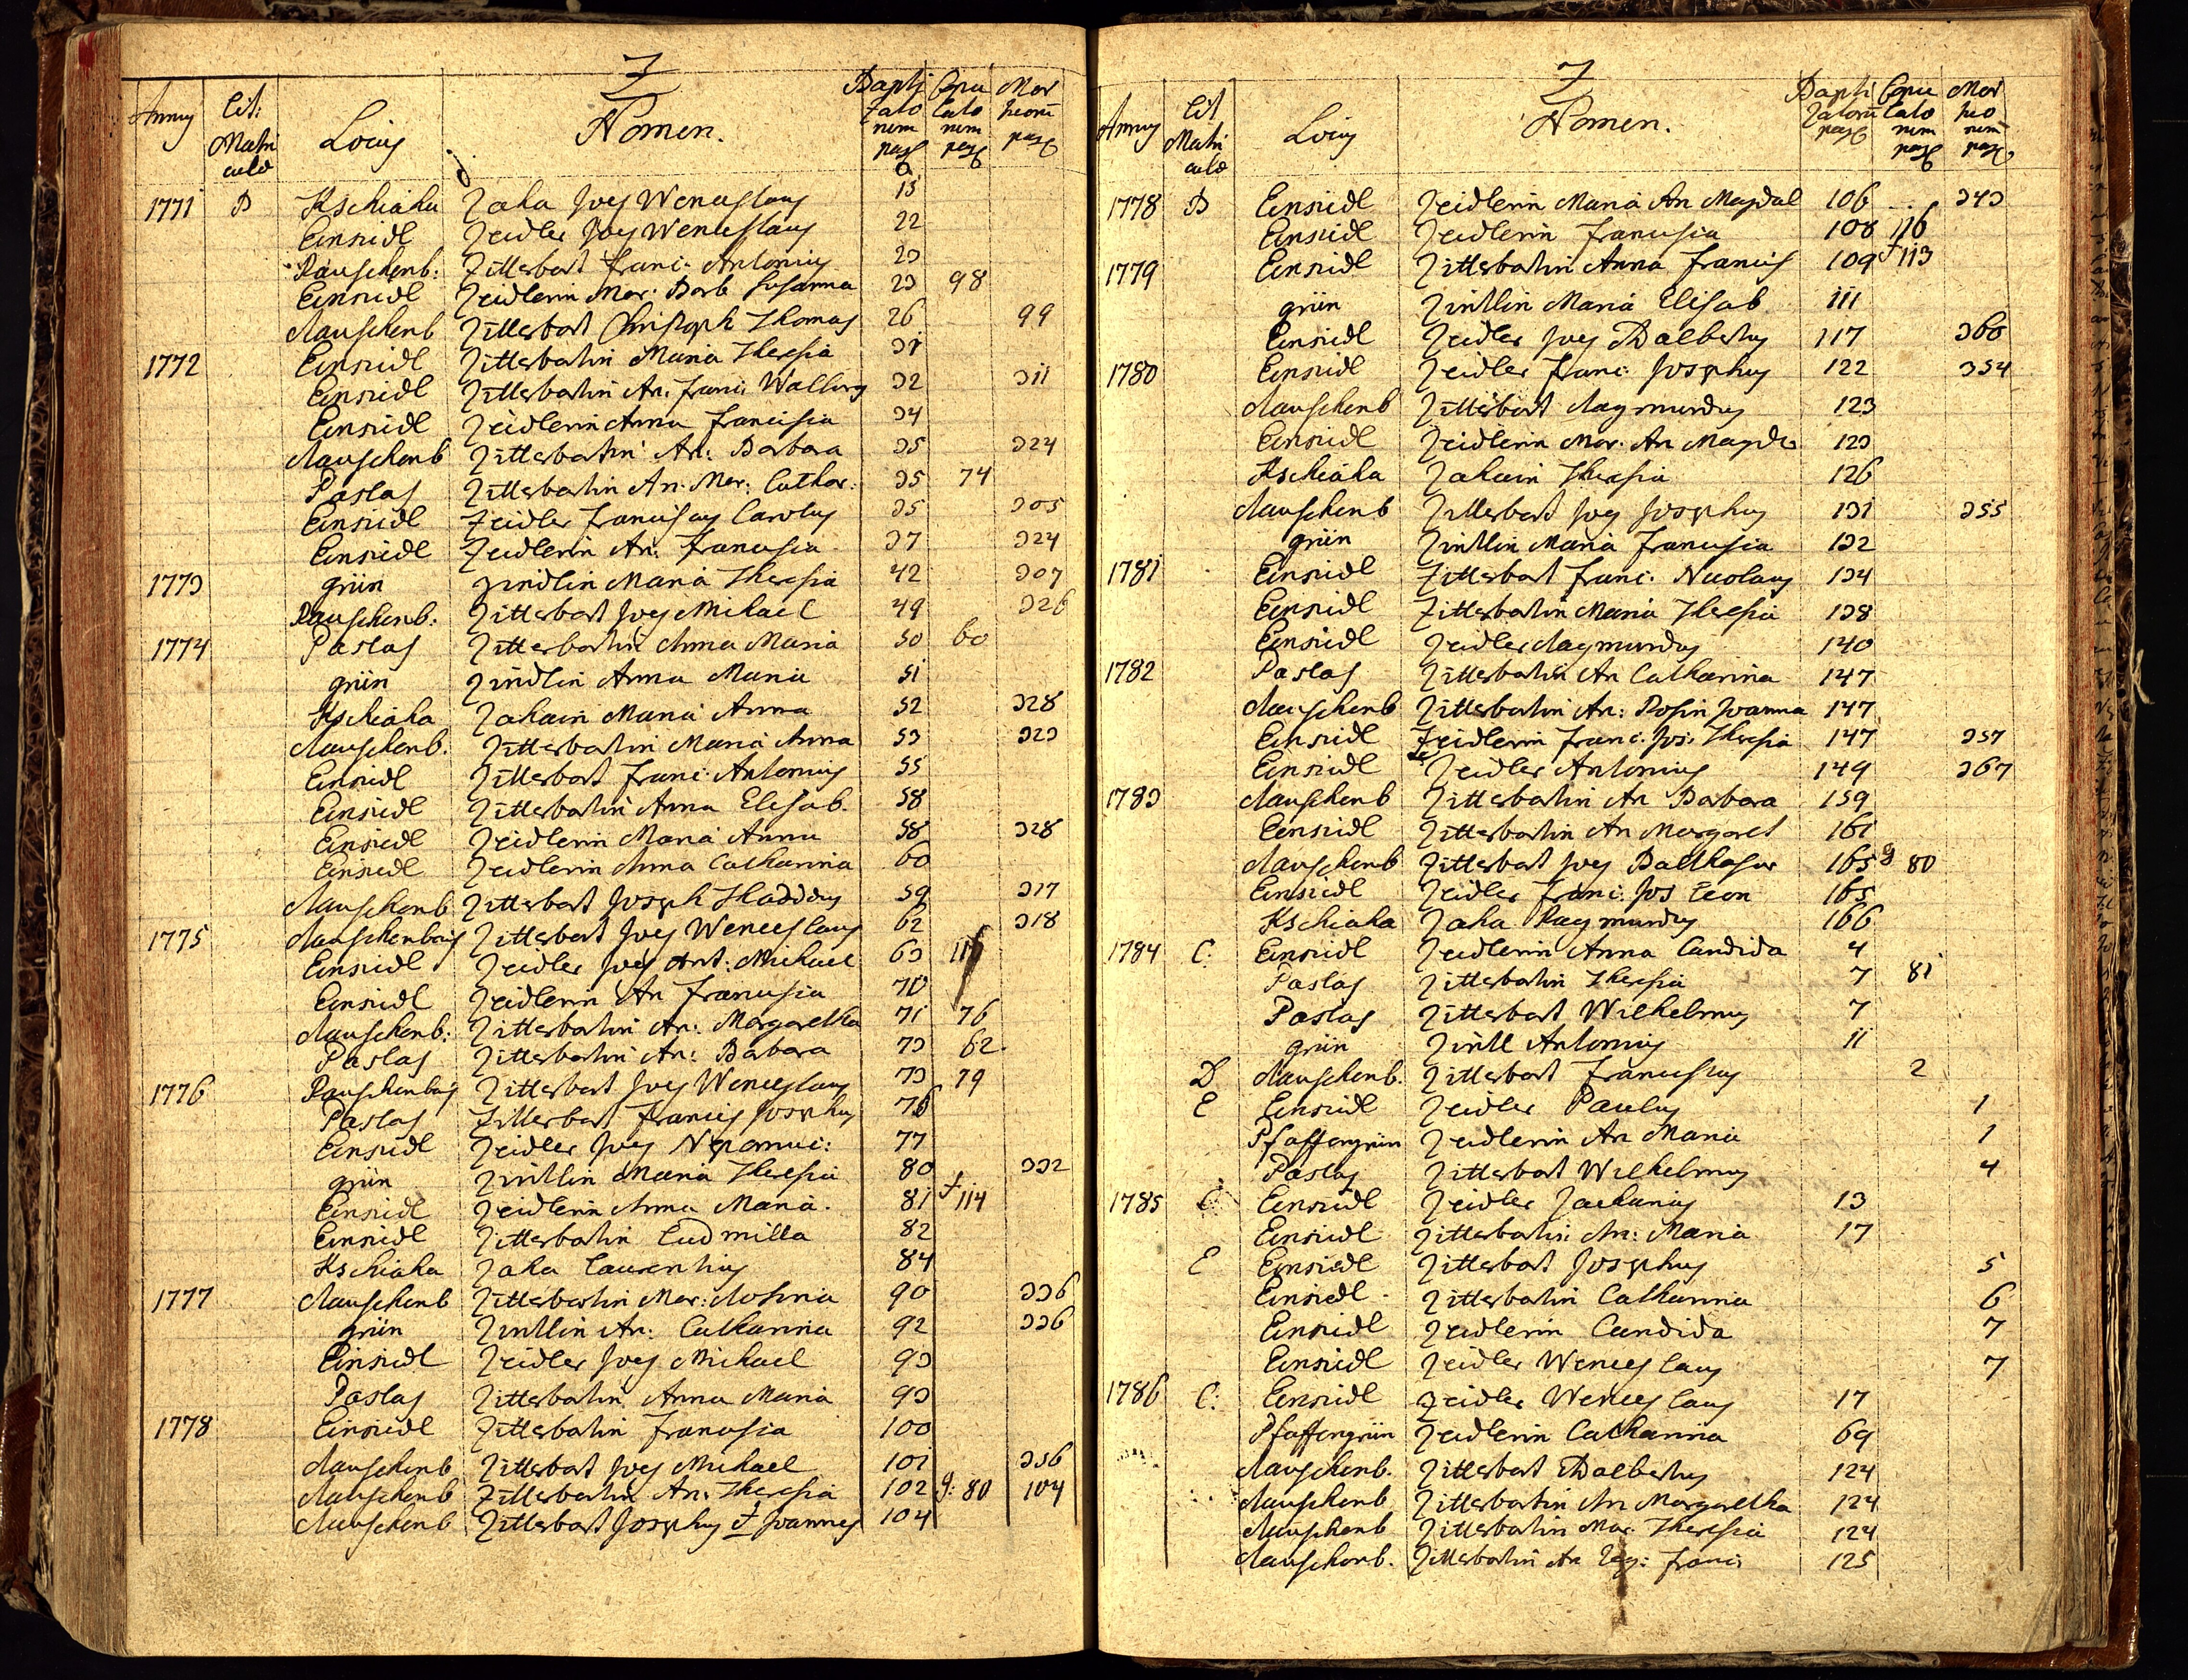 Z
Annus Lit: Matri culæ Locus Nomen. Bapti zato rum pag Copu lato rum pag Mor tuorū pag
1771 B Kschiaha Zaha Joēs Wenceslaus 13
Einsiedl Zeidler Joēs Wenceslaus 22
Rauschenb: Zitterbart Franc: Antonius 23
Einsiedl Zeidlerin Mar: Barb Susanna 23 98
Rauschenb Zitterbart Christoph Thomas 26 99
1772 Einsiedl Zitterbartin Maria Theresia 31
Einsiedl Zitterbartin An: Franc: Walburg 32 311
Einsiedl Zeidlerin Anna Francisca 34
Rauschenb Zitterbartin An: Barbara 35 324
Paslas Zitterbartin An: Mar: Cathar: 35 74
Einsiedl Zeidler Franciscus Carolus 35 305
Einsiedl Zeidlerin An: Francisca 37 324
1773 grün Zindlin Maria Theresia 42 307
Rauschenb: Zitterbart Joēs Michael 49 326
1774 Paslas Zitterbartin Anna Maria 50 60
grün Zindlin Anna Maria 51
Kschiaha Zahain Maria Anna 52 328
Rauschenb. Zitterbartin Maria Anna 53 323
Einsiedl Zitterbart Franc: Antonius 55
Einsiedl Zitterbartin Anna Elisab. 58
Einsiedl Zeidlerin Maria Anna 58 328
Einsiedl Zeidlerin Anna Catharina 60
Rauschenb Zitterbart Joseph Thaddæus 59 317
1775 Rauschenbach Zitterbart Joēs Wenceslaus 62 318
Einsiedl Zeidler Joēs Ant: Michael 63
Einsiedl Zeidlerin An Francisca 70
Rauschenb: Zitterbartin An: Margaretha 71 76
Paslas Zitterbartin An: Barbara 73 62.
1776 Rauschenbach Zitterbart Joēs Wenceslaus 73 79
Paslas Zitterbart Francis Josephus 76
Einsiedl Zeidler Joēs Nepomuc: 77
grün Zintlin Maria Theresia 80 332
Einsiedl Zeidlerin Anna Maria. 81 † 114
Einsiedl Zitterbartin Ludmilla 82
Kschiaha Zaha Laurentius 84
1777 Rauschenb Zitterbartin Mar: Rosina 90 336
grün Zintlin An: Catharina 92 336
Einsiedl Zeidler Joēs Michael 93
Paslas Zitterbartin Anna Maria 93
1778 Einsiedl Zitterbartin Francisca 100
Rauschenb Zitterbart Joēs Michael 101 356
Rauschenb Zitterbartin An: Theresia 102 g: 80 104
Rauschenb Zitterbart Josephus et Joannes 104
Z
Annus Lit Matri culæ Locus Nomen. Bapti zatorū pag Copu lato rum pag Mor tuo rum pag
1778 B Einsiedl Zeidlerin Maria An Magdal 106 343
Einsiedl Zeidlerin Francisca 108 116
1779 Einsiedl Zitterbartin Anna Francis 109 † 113
grün Zintlin Maria Elisab 111
Einsiedl Zeidler Joēs Dalbertus 117 360
1780 Einsiedl Zeidler Franc: Josephus 122 354
Rauschenb Zitterbart Raymundus 123
Einsiedl Zeidlerin Mar: An Magda 123
Kschiaha Zahain Theresia 126
Rauschenb Zitterbart Joēs Josephus 131 355
grün Zintlin Maria Francisca 132
1781 Einsiedl Zitterbart Franc: Nicolaus 134
Einsiedl Zitterbartin Maria Theresia 138
Einsiedl Zeidler Raymundus 140
1782 Paslas Zitterbartin An Catharina 147
Rauschenb Zitterbartin An: Rosin Joanna 147
Einsiedl Zeidlerin Franc: Jos: Theresia 147 357
Einsiedl Zeidler Antonius 149 367
1783 Rauschenb Zitterbartin An Barbara 159
Einsiedl Zitterbartin An Margaret 161
Rauschenb Zitterbart Joēs Balthasar 165 g 80
Einsiedl Zeidler Franc: Jos Leon 165
Kschiaha Zaha Raymundus 166
1784 C: Einsiedl Zeidlerin Anna Candida 4
Paslas Zitterbartin Theresia 7 81
Paslas Zitterbart Wilhelmus 7
grün Zintl Antonius 11
D Rauschenb. Zitterbart Franciscus 2
E Einsiedl Zeidler Paulus 1
Pfaffengrün Zeidlerin An Maria 1
Paslas Zitterbart Wilhelmus 4
1785 C Einsiedl Zeidler Zacharias 13
Einsiedl Zitterbartin An: Maria 17
E Einsiedl Zitterbart Josephus 5
Einsiedl Zitterbartin Catharina 6
Einsiedl Zeidlerin Candida 7
Einsiedl Zeidler Wenceslaus 7
1786 C: Einsiedl Zeidler Wenceslaus 17
Pfaffengrün Zeidlerin Catharina 69
Rauschenb. Zitterbart Dalbertus 124
Rauschenb Zitterbartin An Margaretha 124
Rauschenb Zitterbartin Mar. Theresia 124
Rauschenb. Zitterbartin An Franc: 125